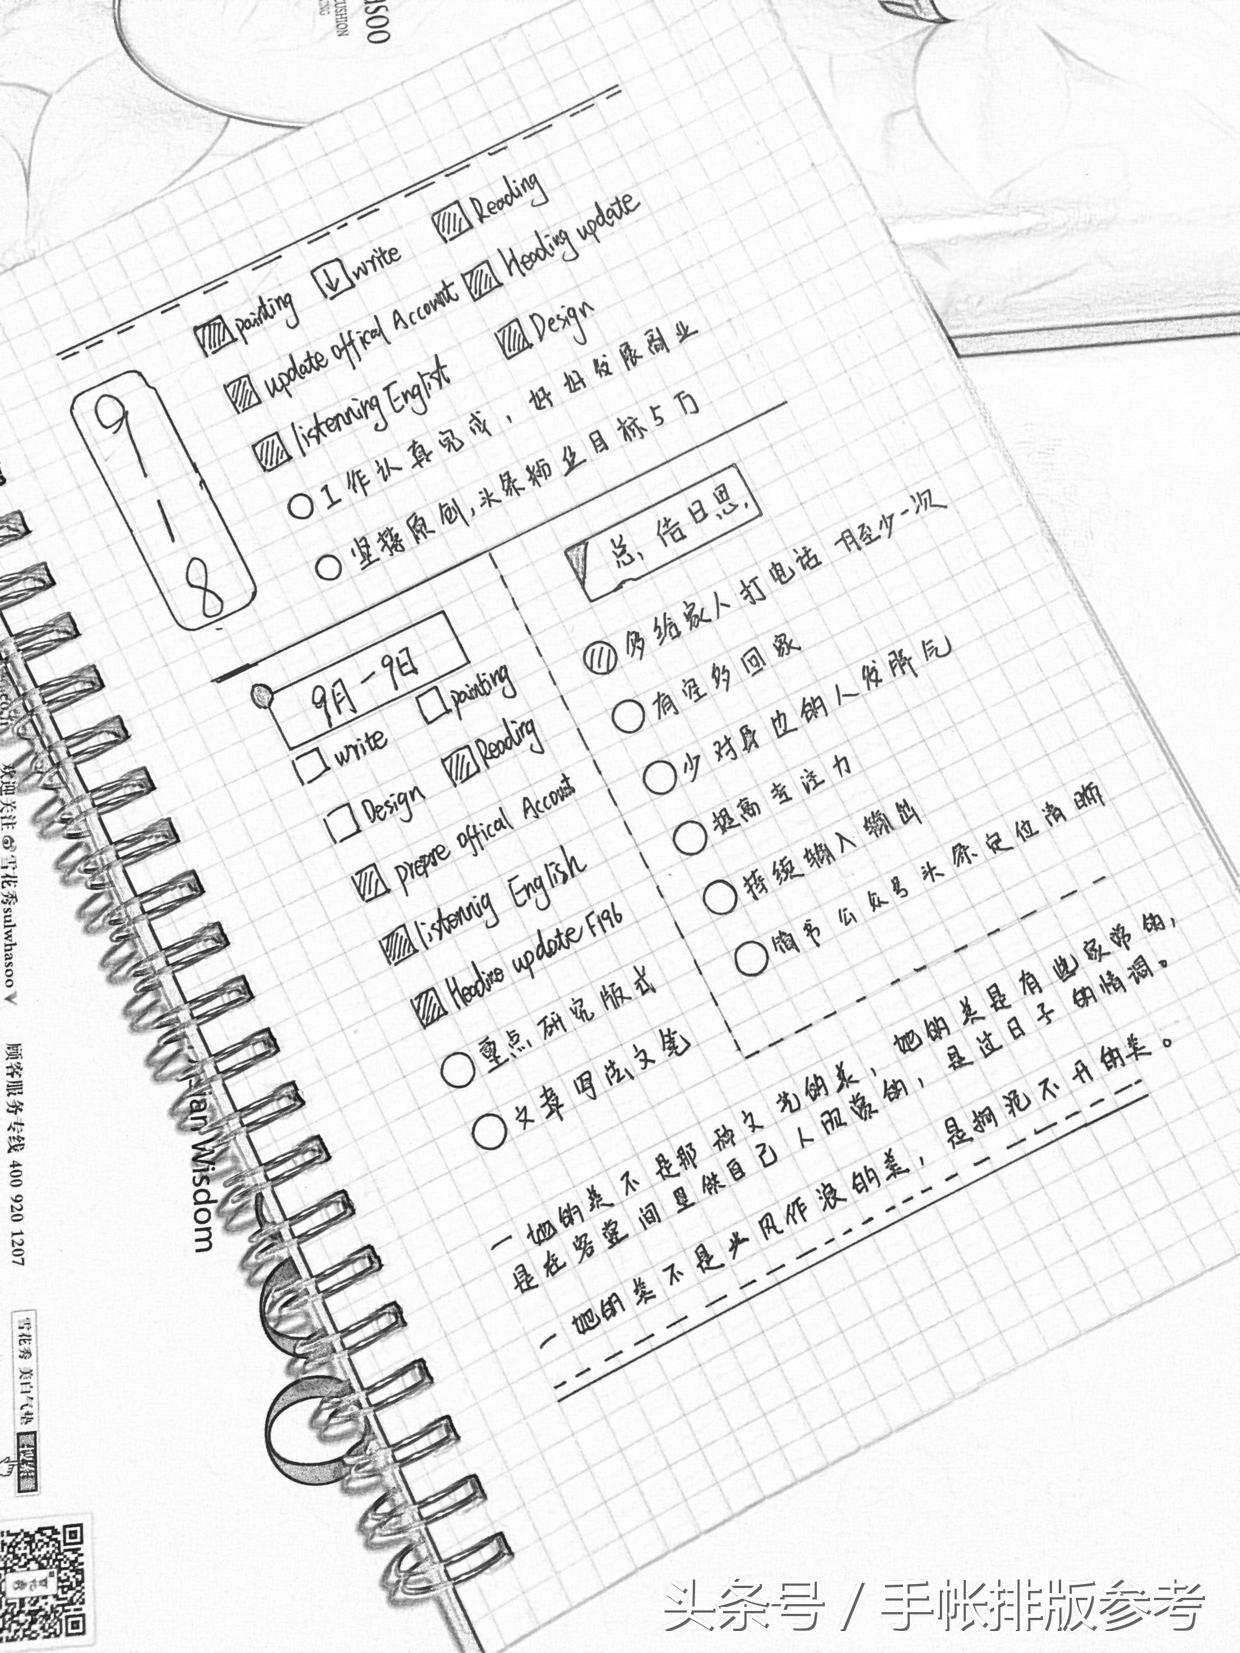 soo
CUSHION
9-18
painting
write
Reading
update offical Account
Heading update
listenning English
Design
工作认真完成，好好发展副业
坚持原创,头条粉丝目标5万
9月-9日
write
painting
Design
Reading
prepare offical Account
listennig English
update F196
重点研究版式
文章写法文笔
总,结日思,
多给家人打电话 一月至少一次
有空多回家
少对身边的人发脾气
提高专注力
持续输入输出
简书公众号头条定位清晰
一她的美不是那种文艺的美，她的美是有些家常的，
是在客堂间里供自己人照赏的，是过日子的情调。
一她的美不是兴风作浪的美，是拘泥不开的美。
欢迎关注@雪花秀sulwhasoo
顾客服务专线 400 920 1207
Asian Wisdom
雪花秀 美白气垫
头条号 / 手帐排版参考